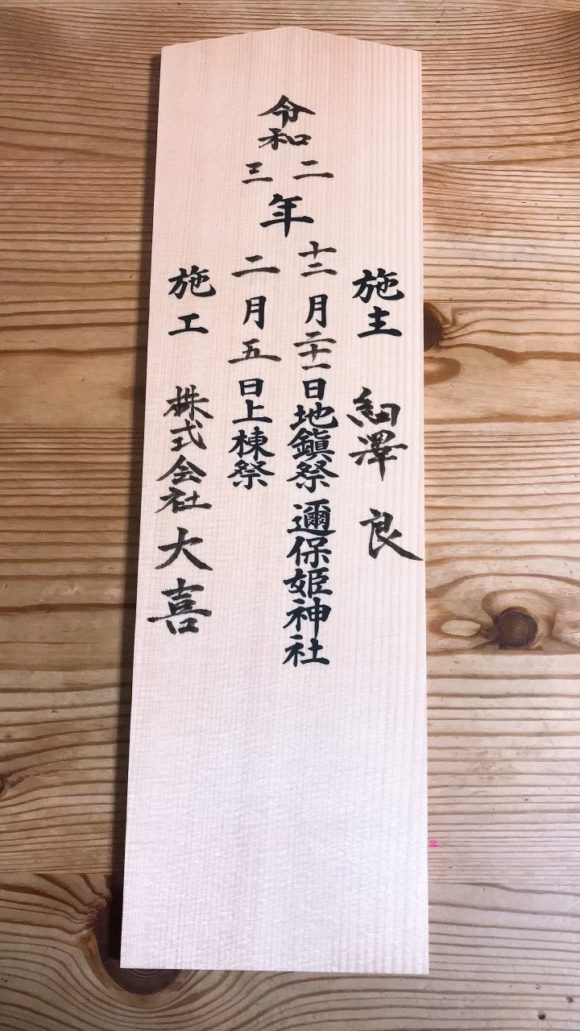 施主 細澤 良
令和
二 年 十二月二十一日地鎮祭 邇保姫神社
三 年 二月五日上棟祭
施工 株式会社大喜